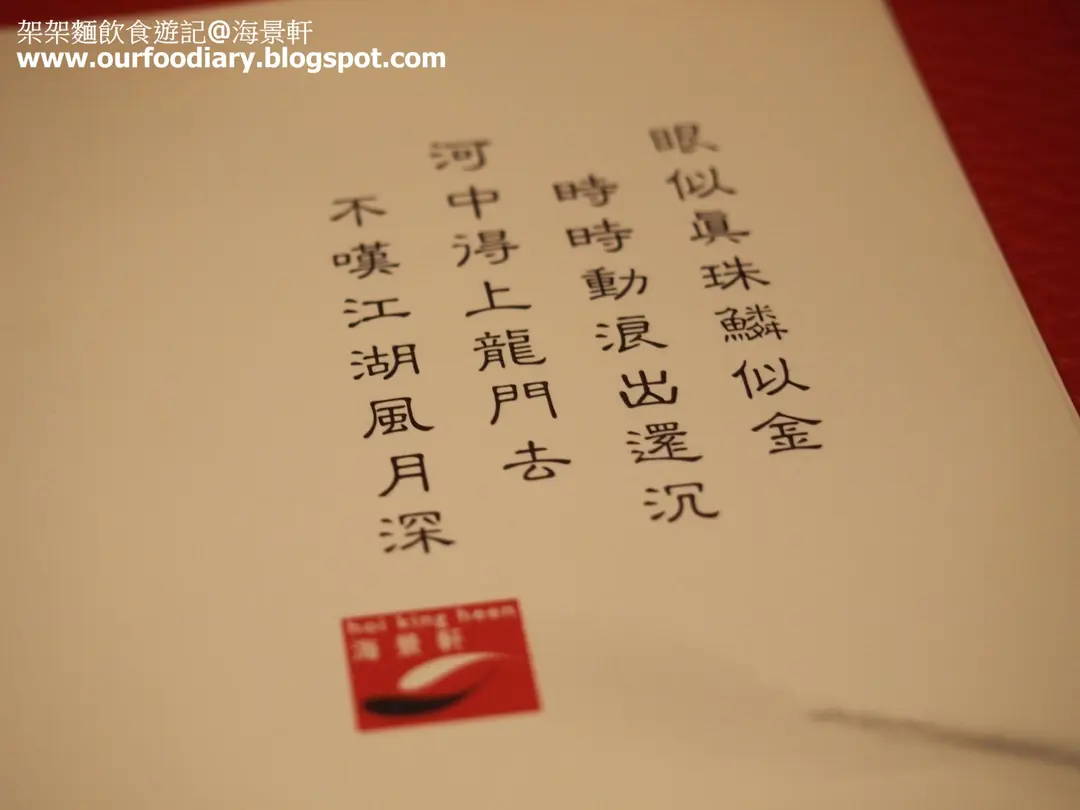 架架麵飲食遊記@海景軒
www.ourfoodiary.blogspot.com
眼似眞珠鱗似金
時時動浪出還沉
河中得上龍門去
不嘆江湖風月深
hoi king heen
海景軒